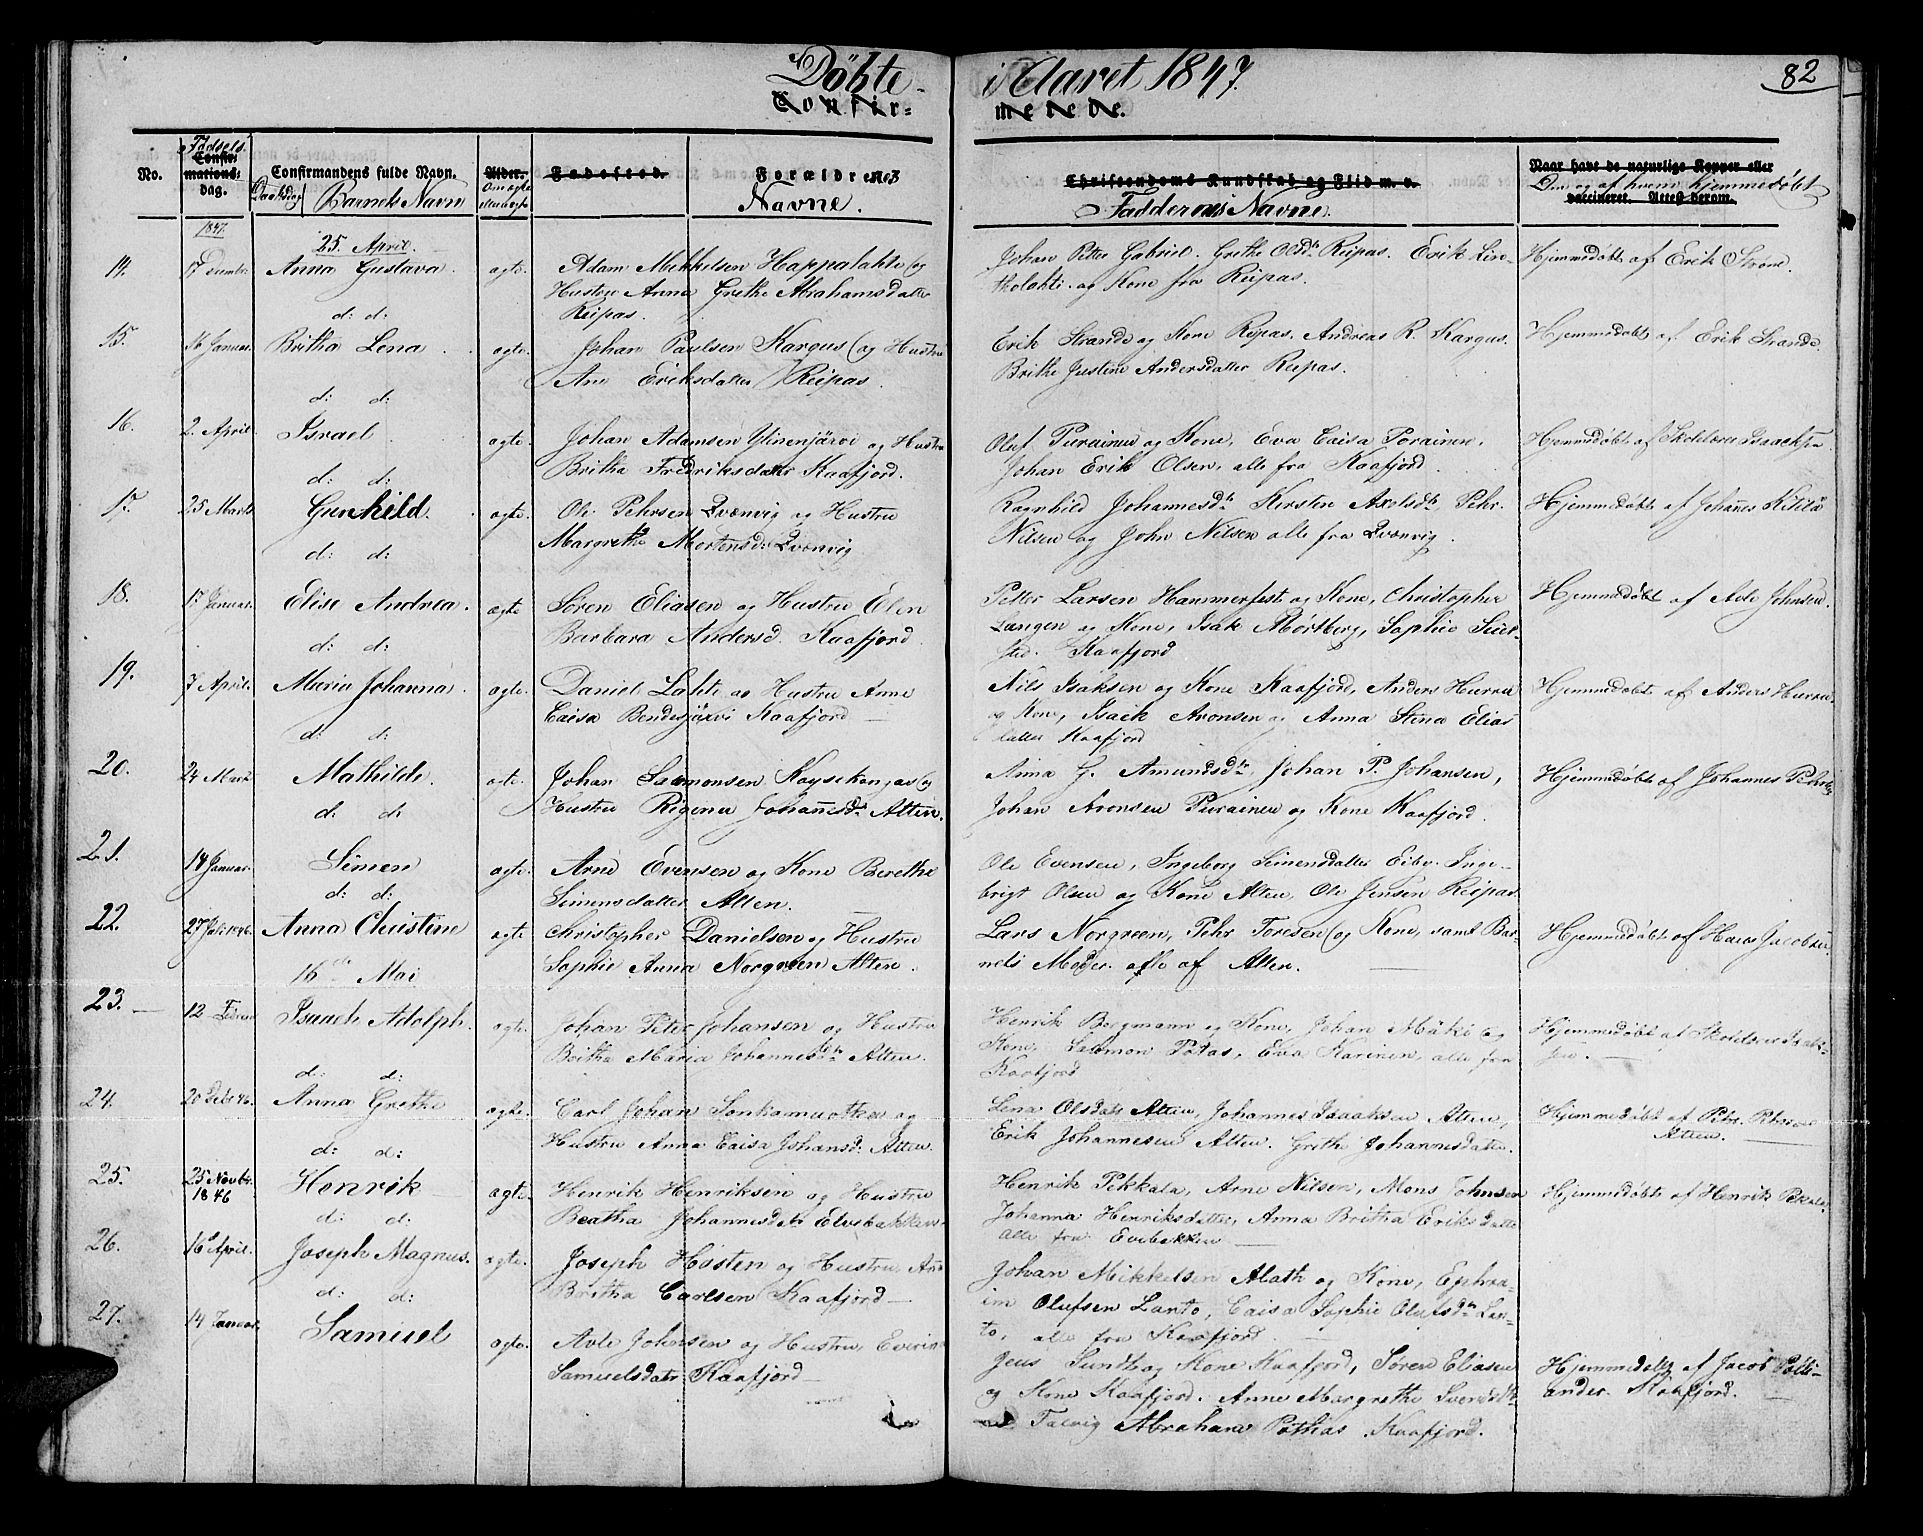 Döbte i Aaret 1847.
82
Confir= merede.
No.
Fødsels
Confirmations= dag.
Confirmandens fulde Navn.
Daabsdag Barnets Navn
Alder.
Om ægte eller uægte
Fødested.
Forældrenes
Navne.
Christendoms Kundskab og Flid m. v.
Faddernes Navne.
Naar havt de naturlige Kopper eller
Om og af hvem hjemmedøbt
vaccineret. Attest derom.
1847.
25. April.
14. 17 Anna Gustava ægte. Adam Mikkelsen Happalahti og
Hustru Anna Grethe Abrahamsdatter
Reipas.
Johan Petter Gabriel. Grethe Olsdtr Reipas. Erik
og Kone fra Reipas.
Hjemmedøbt af Erik Strøm.
d: d:
15. 16 Januar. Britha Lena ægte. Johan Paulsen Kargus og Hustru
Ane Eriksdatter Reipas.
Erik Strande og Kone Reipas. Andreas R. Kargus.
Brithe Justine Andersdatter Reipas.
Hjemmedøbt af Erik Strande.
d: d:
16. 2. April Israel ægte. Johan Adamsen Ylinenjärvi og Hustru
Britha Fredriksdatter Kaafjord.
Oluf Purainen og Kone, Eva Caisa Porainen,
Johan Erik Olsen, alle fra Kaafjord.
Hjemmedøbt af Skolelærer Isaachsen
d: d:
17. 25 Marts Gunhild. ægte. Ole Pehrsen Qvænvig og Hustru
Margrethe Mortensd: Qvænvig
Ragnhild Johannesdtr Kirsten Axelsdtr, Pehr
Nilsen og John Nilsen alle fra Qvænvig.
Hjemmedøbt af Johanes Kitilä
d: d:
18. 17 Januar. Elise Andrea. ægte Søren Eliasen og Hustru Elen
Barbara Andersd. Kaafjord
Petter Larsen Hammerfest og Kone, Christopher
Langen og Kone, Isak Mortberg, Sophie
Kaafjord
Hjemmedøbt af Avle Johnsen.
d: d:
19. 7 April. Maria Johanna. ægte. Daniel Lahti og Hustru Anne
Caisa Bendesjärvi Kaafjord
Nils Isaksen og Kone Kaafjord, Anders Hurru
og Kone, Isack Aronsen og Anna Stina Elias
datter Kaafjord
Hjemmedøbt af Anders Hurru
d: d:
20. 24 Marts Mathilde. ægte. Johan Salamonsen Koysekangas og
Hustru Rigena Johannesd: Alten.
Anna G. Amundsdtr, Johan P. Johansen,
Johan Aronsen Purainen og Kone Kaafjord.
Hjemmedøbt af Johannes
d: d:
21. 14 Januar. Simen ægte. Arne Evensen og Kone Berethe
Simensdatter Alten.
Ole Evensen, Ingeborg Simensdatter Eiby. Inge-
brigt Olsen og Kone Alten, Ole Jensen Reipas.
d: d:
22. 27 Juli 1846. Anna Christine ægte Christopher Danielsen og Hustru
Sophie Anna Norgreen Alten.
Lars Norgreen, Pehr Foresen og Kone, samt Bar-
nets Moder. alle af Alten.
Hjemmedøbt af Hans Jacobsen
16de Mai
23. 12 Isaach Adolph. ægte. Johan Peter Johansen og Hustru
Britha Maria Johannesdtr Alten.
Henrik Borgmann og Kone, Johan Mäki og
Kone, Salomon Potas, Eva Karinen, alle fra
Kaafjord
Hjemmedøbt af Skolelærer Isak-
sen.
d: d:
24. 20 Anna Grethe ægte Carl Johan Sonkamuotka og
Hustru Anna Caisa Johansd: Alten.
Lena Olsdatr Alten, Johannes Isaaksen Alten,
Erik Johannesen Alten. Grethe Johannesdatter.
Hjemmedøbt af Petr.
Alten.
d: d:
25. 25 Novbr. 1846 Henrik ægte. Henrik Henriksen og Hustru
Beatha Johannesdatr Elvebakken
Henrik Pekkala, Arne Nilsen, Mons Johnsen
Johanna Henriksdatter, Anna Britha Eriksdatter
alle fra
Hjemmedøbt af Henrik Pekkala.
d: d:
26. 16 April. Joseph Magnus. ægte. Joseph Høsten og Hustru Ane
Britha Carlsen Kaafjord
Johan Mikkelsen Alath og Kone, Ephra-
im Olufsen Lanto, Caisa Sophie Olufsdtr Lan-
to, alle fra Kaafjord.
d: d:
27. 14 Januar. Samuel ægte. Avle Johnsen og Hustru
Samuelsdatr Kaafjord
Jens Sundt og Kone Kaafjord, Søren Eliasen
og Kone Kaafjord. Anne Margrethe
Talvig Abraham Pothas. Kaafjord.
Hjemmedøbt af Jacob
Kaafjord.